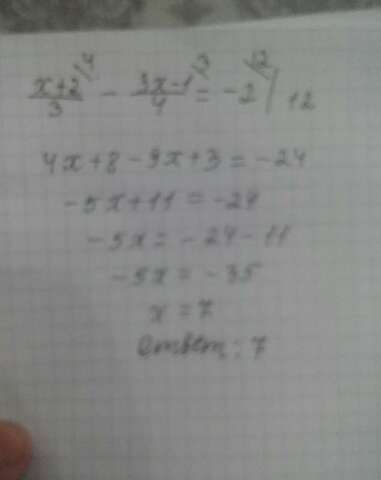 (x+2)/3 \4 - (3x-1)/4 \3 = -2 \12 | 12
4x+8-9x+3=-24
-5x+11=-24
-5x=-24-11
-5x=-35
x=7
Ответ: 7